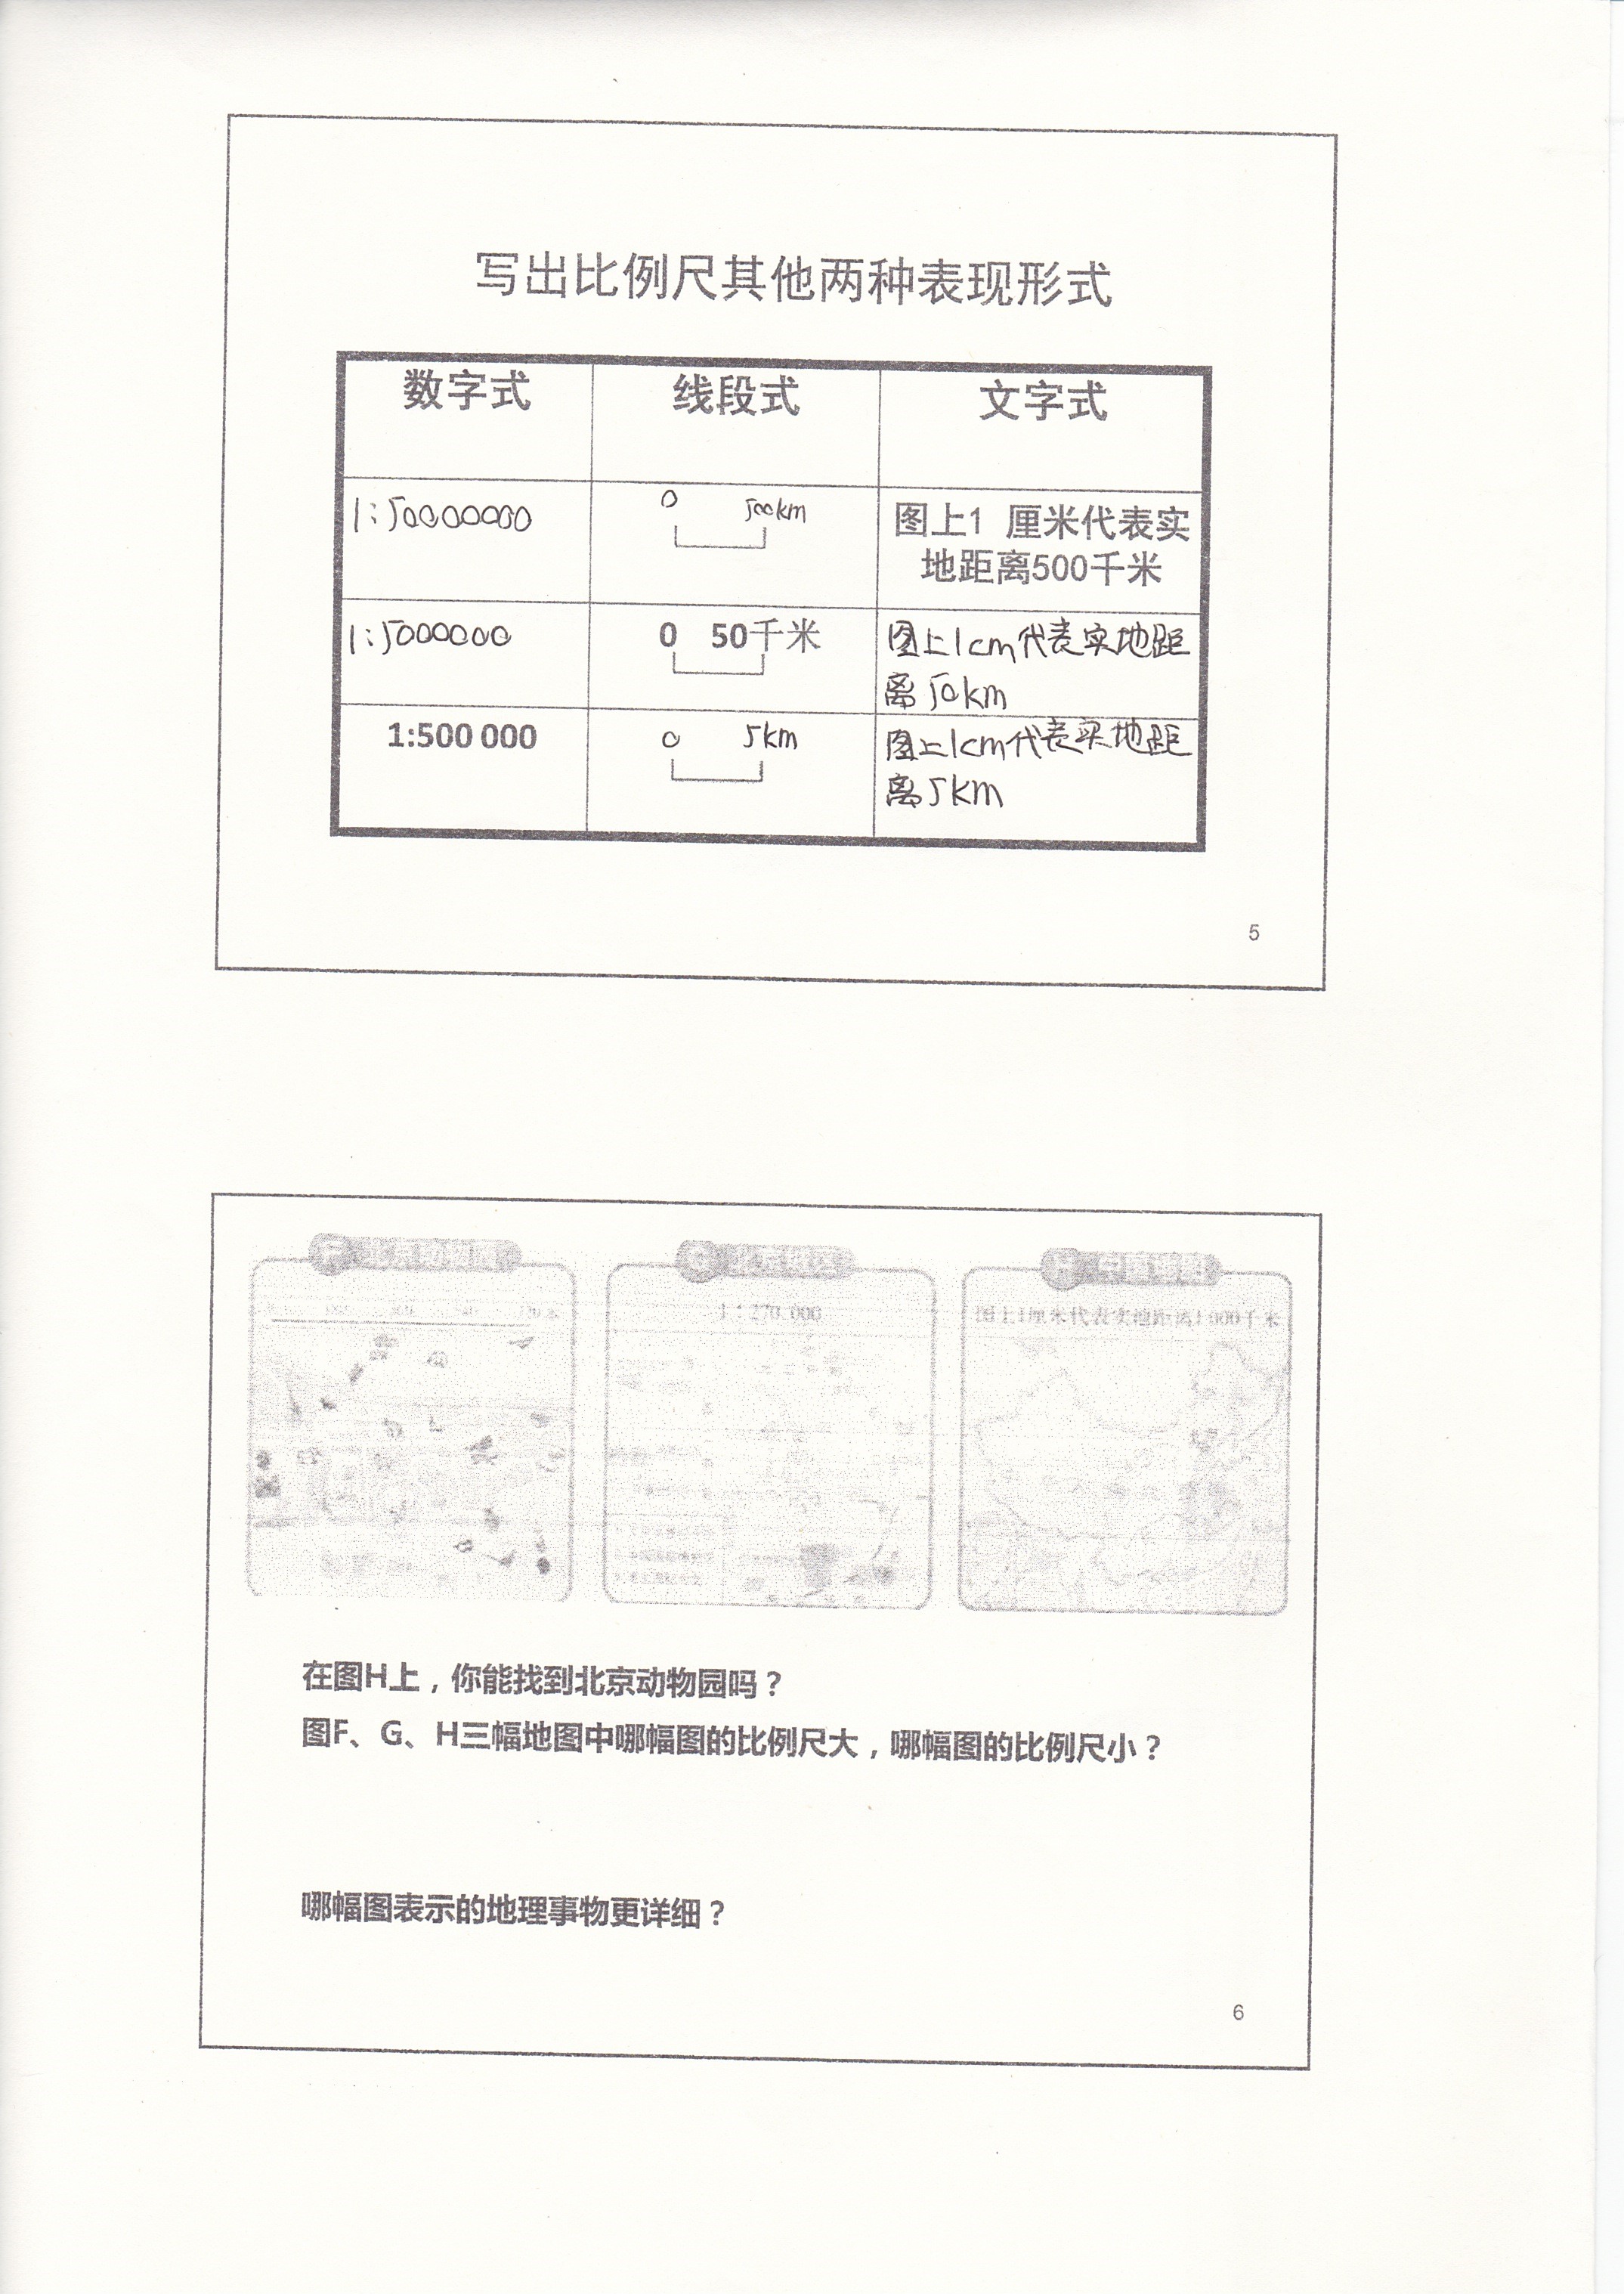 写出比例尺其他两种表现形式
数字式 线段式 文字式
1:50000000 0 500km 图上1 厘米代表实
地距离500千米
1:5000000 0 50千米 图上1cm代表实地距
离50km
1:500 000 0 5km 图上1cm代表实地距
离5km
5
G H 中国地图
1:270 000 图上1厘米代表实地距离1 000千米
在图H上，你能找到北京动物园吗？
图F、G、H三幅地图中哪幅图的比例尺大，哪幅图的比例尺小？
哪幅图表示的地理事物更详细？
6